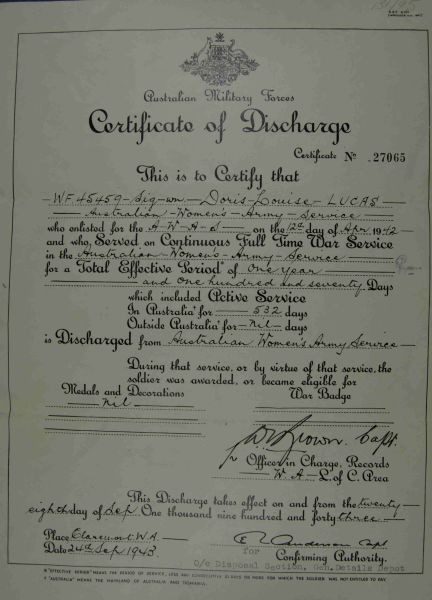 Australian Military Forces
Certificate of Discharge
Certificate No. 27065
This is to Certify that
WF 45459 - Sig-wn. - Doris - Louise - LUCAS -
Australian - Women's - Army - Service
who enlisted for the A-W-A-S on the day of Apr 1942
and who Served on Continuous Full Time War Service
in the Australian - Women's - Army - Service
for a Total Effective Period* of One year
and One hundred and seventy Days
which included Active Service
In Australia† for 532 days
Outside Australia† for - nil - days
is Discharged from Australian Women's Army Service -
During that service, or by virtue of that service, the
soldier was awarded, or became eligible for
Medals and Decorations
nil
War Badge
Brown. Capt.
Officer in Charge, Records
W. A - L. of C. Area
This Discharge takes effect on and from the twenty-
eighth day of Sep One thousand nine hundred and forty three -
Place Claremont W.A -
Date 24th Sep 1943.
E Anderson Capt
for
Confirming Authority.
O/c Disposal Section, Gen. Details Depot
† "AUSTRALIA" MEANS THE MAINLAND OF AUSTRALIA AND TASMANIA.